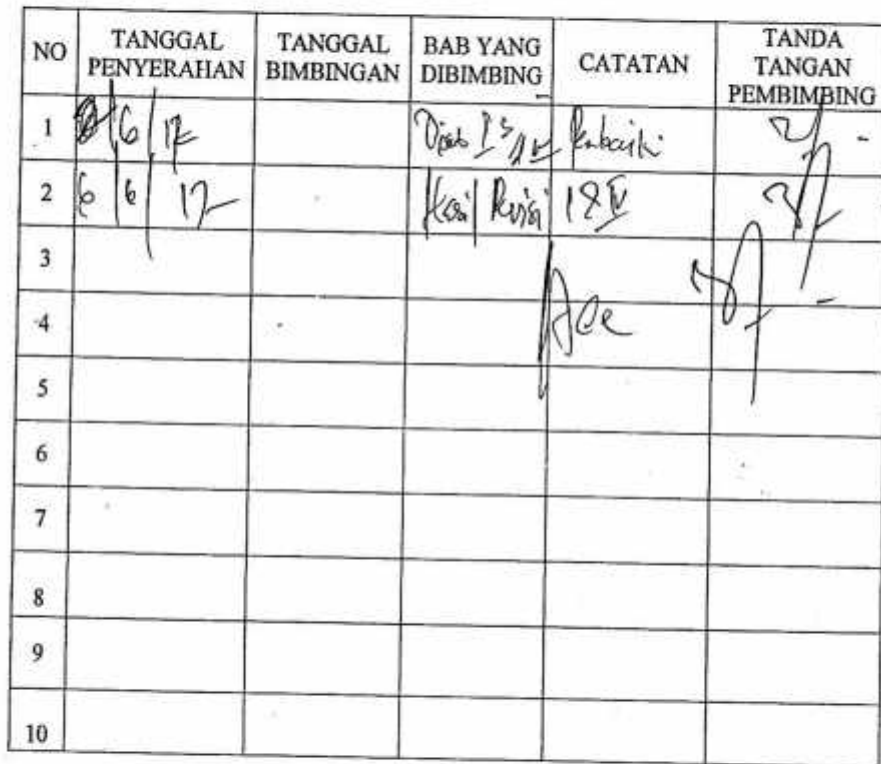 NO TANGGAL PENYERAHAN TANGGAL BIMBINGAN BAB YANG DIBIMBING CATATAN TANDA TANGAN PEMBIMBING
1 6 / 17
2 6 / 6 / 17 Revisi
3
Acc
4
5
6
7
8
9
10